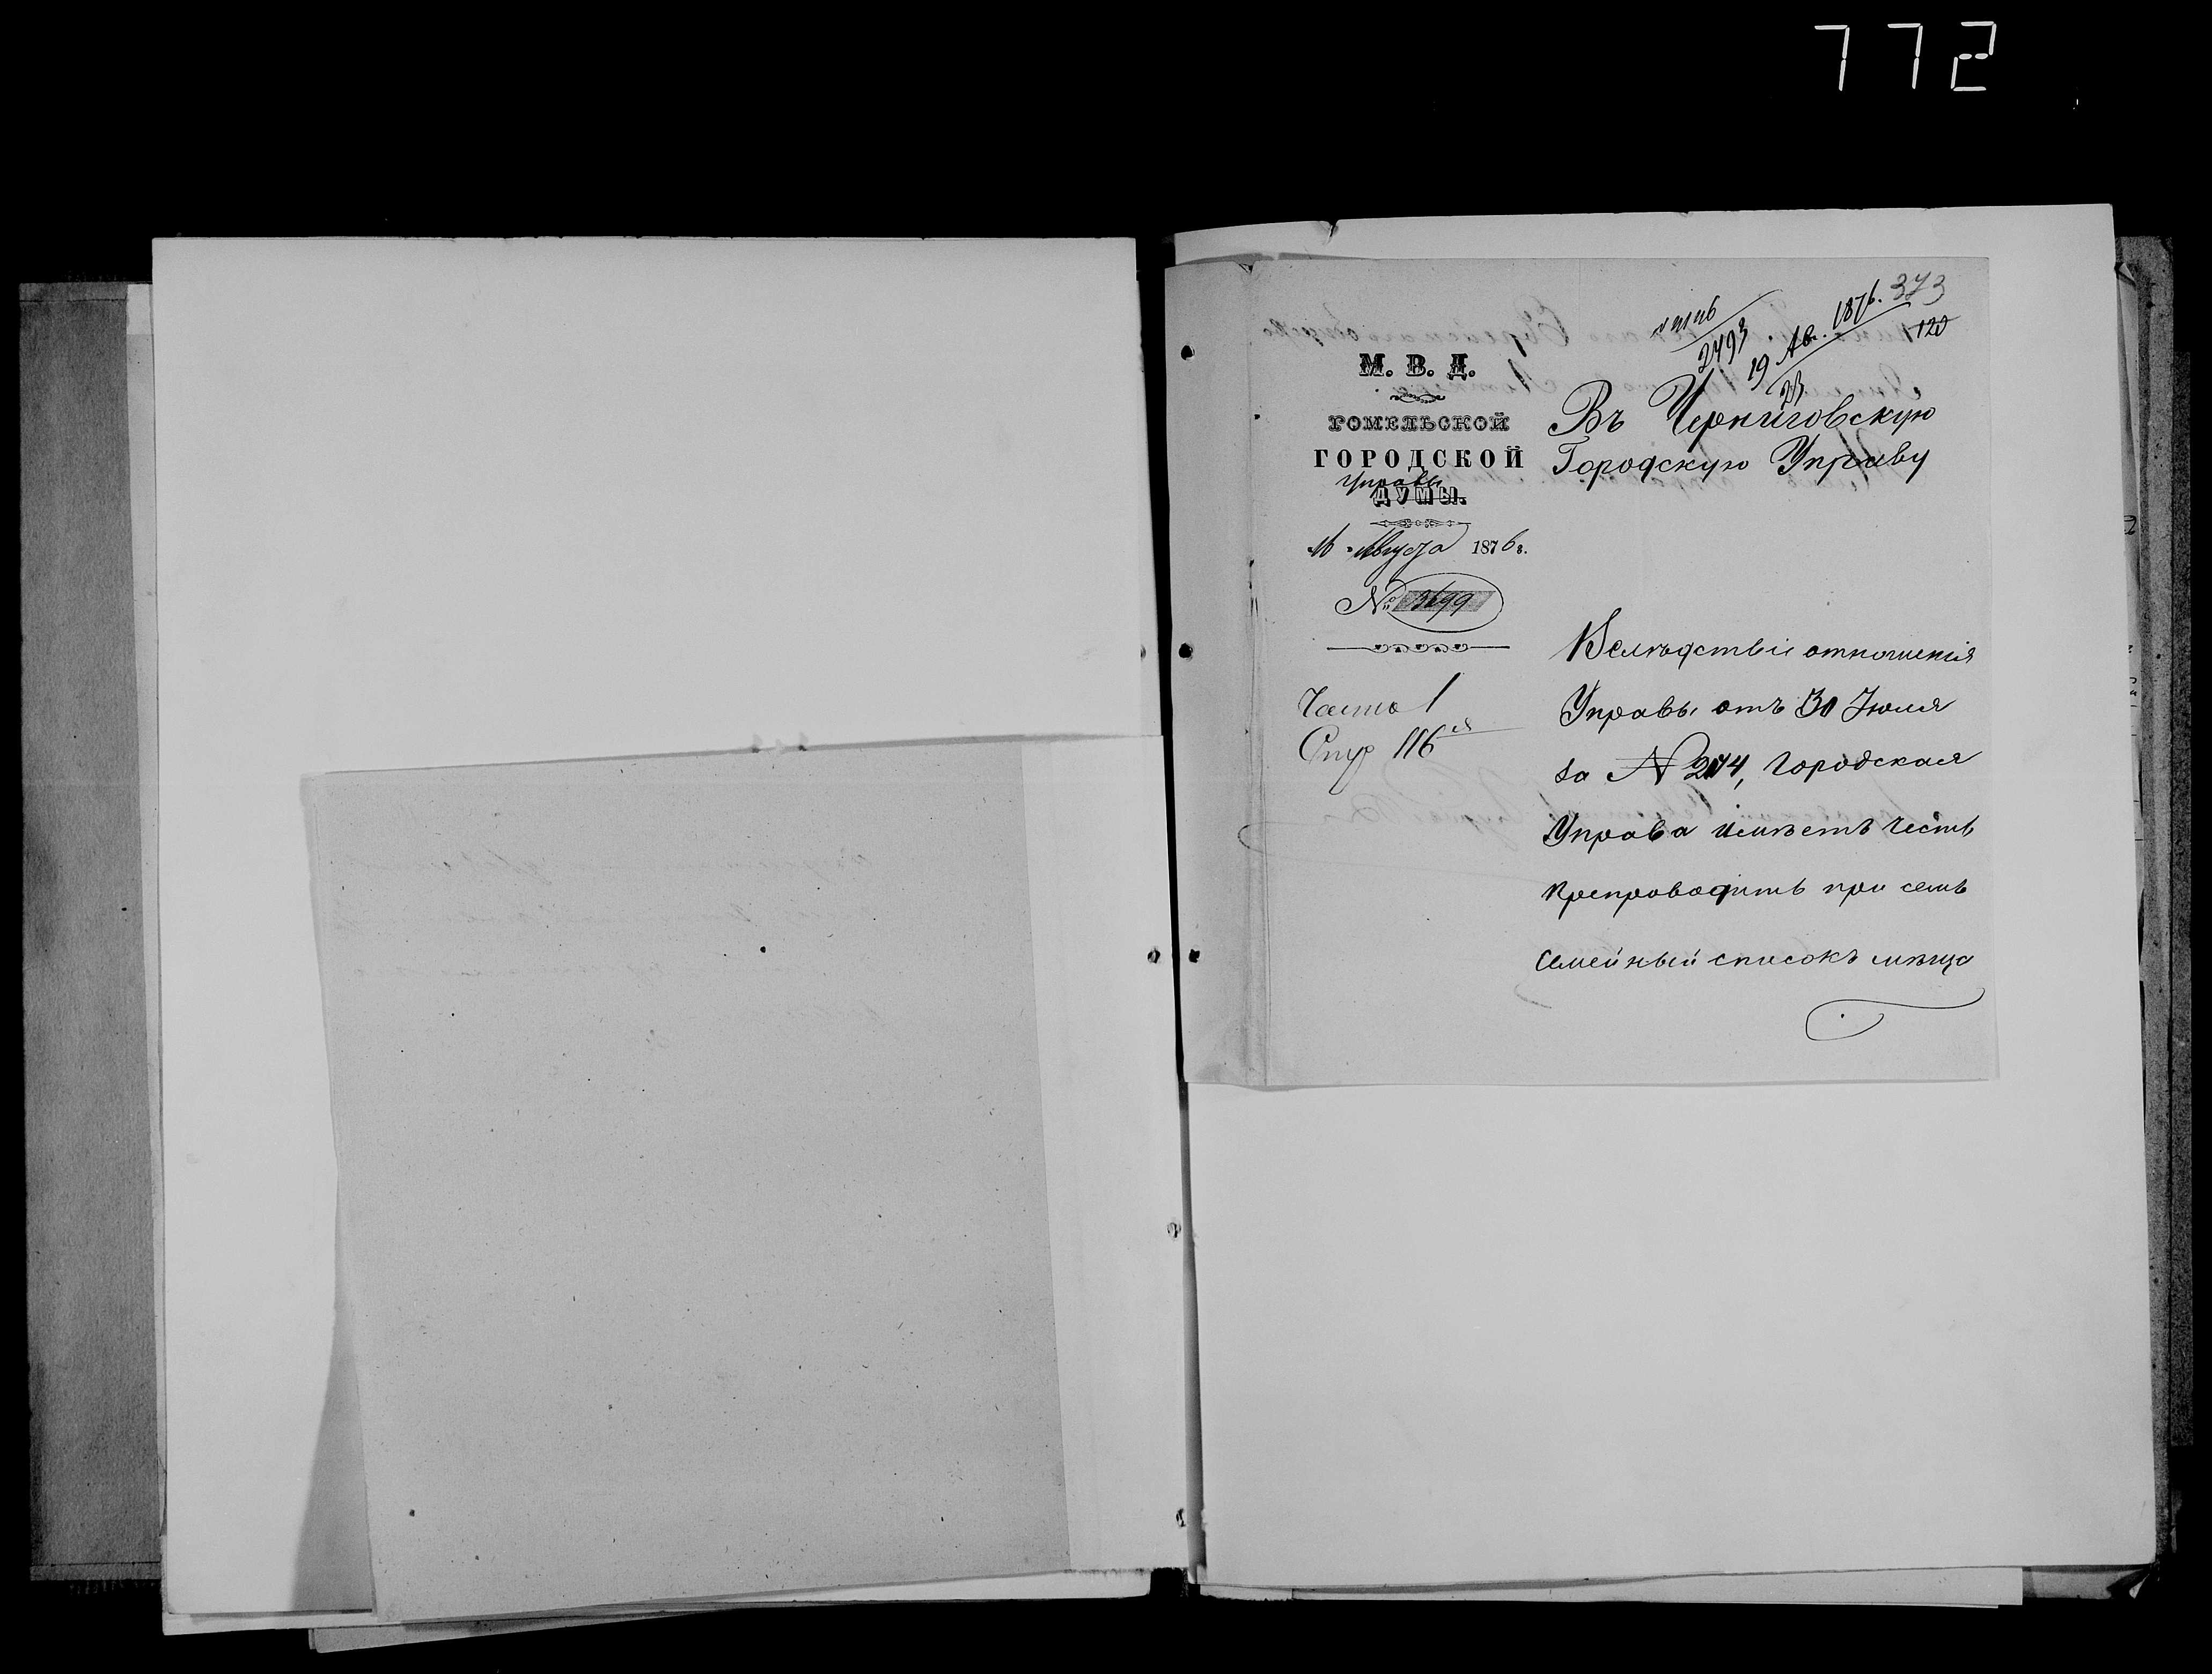 772
373
120
2493
19 Ав. 1876.
23
М. В. Д.
ГОМЕЛЬСКОЙ
ГОРОДСКОЙ
Управы
ДУМЫ.
16 Августа 1876 г.
№ 3699
Часть 1
Стр 116 ая
Въ Черниговскую
Городскую Управу
Вслѣдствіе отношенія
Управы отъ 30 Іюля
за № 2174, Городская
Управа имѣетъ честь
препроводить при семъ
семейный списокъ мѣща